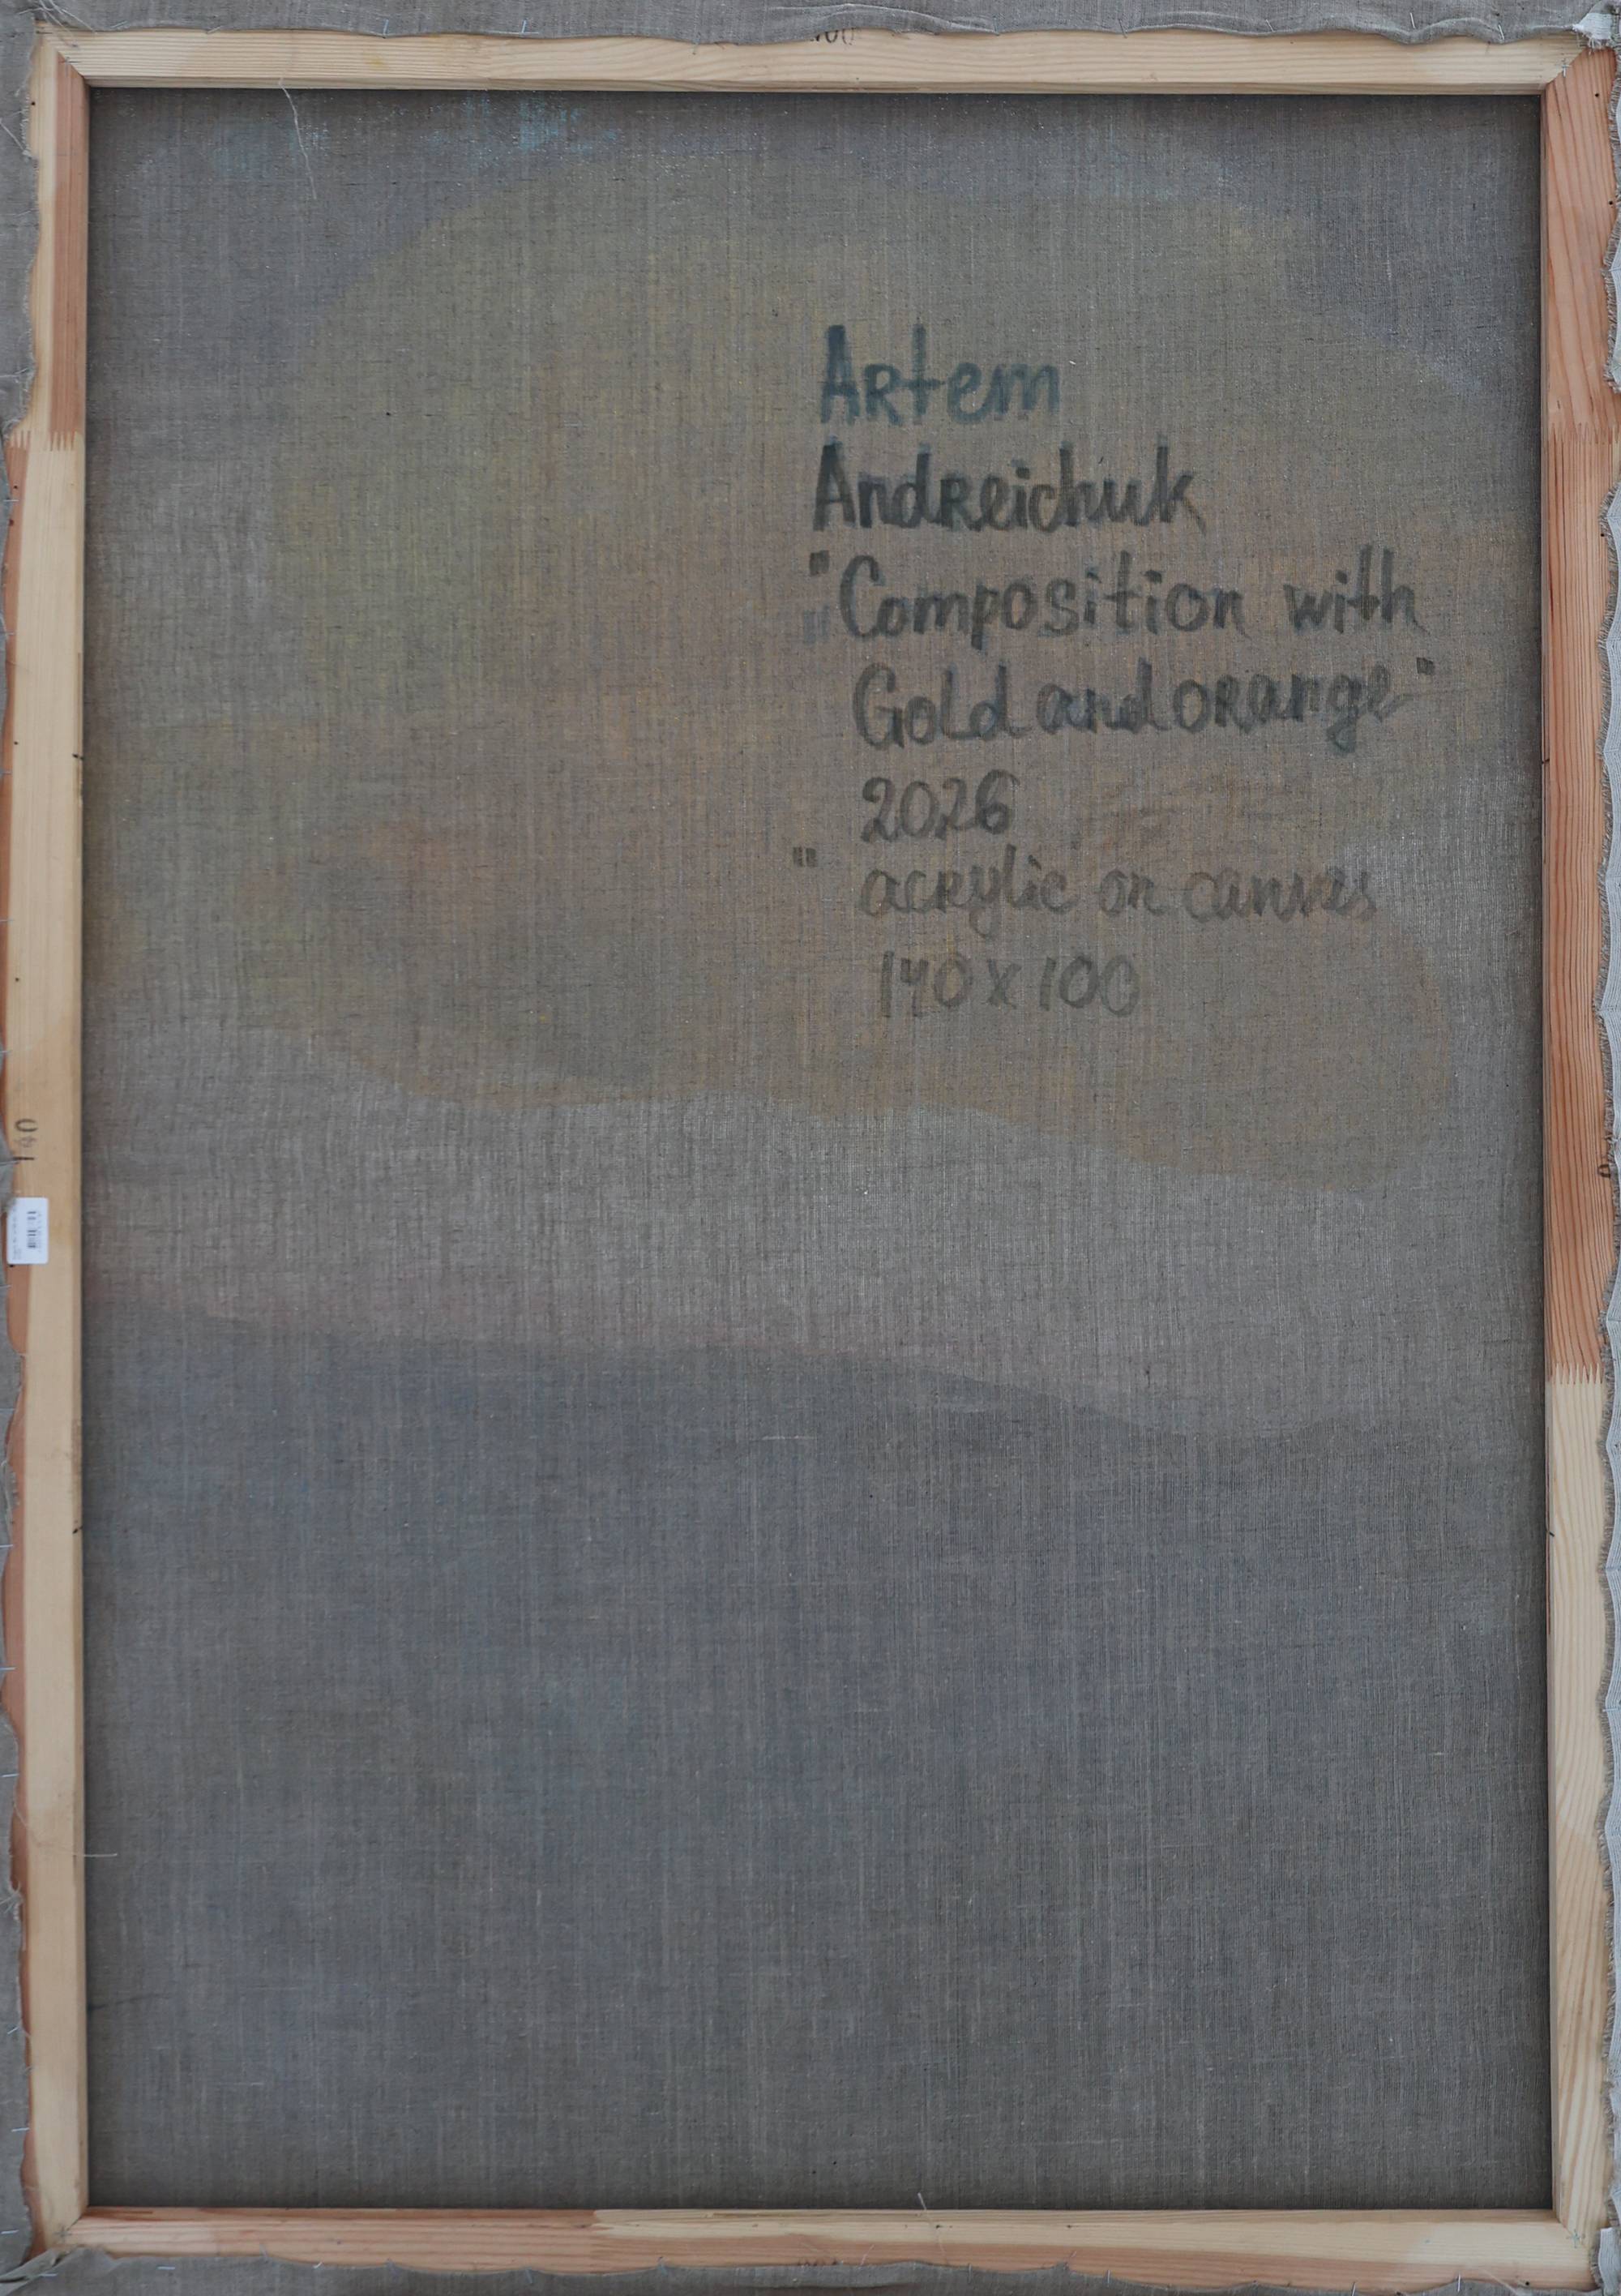 100
Artem
Andreichuk
"Composition with
Gold and orange"
2026
" acrylic on canvas
140 x 100
140